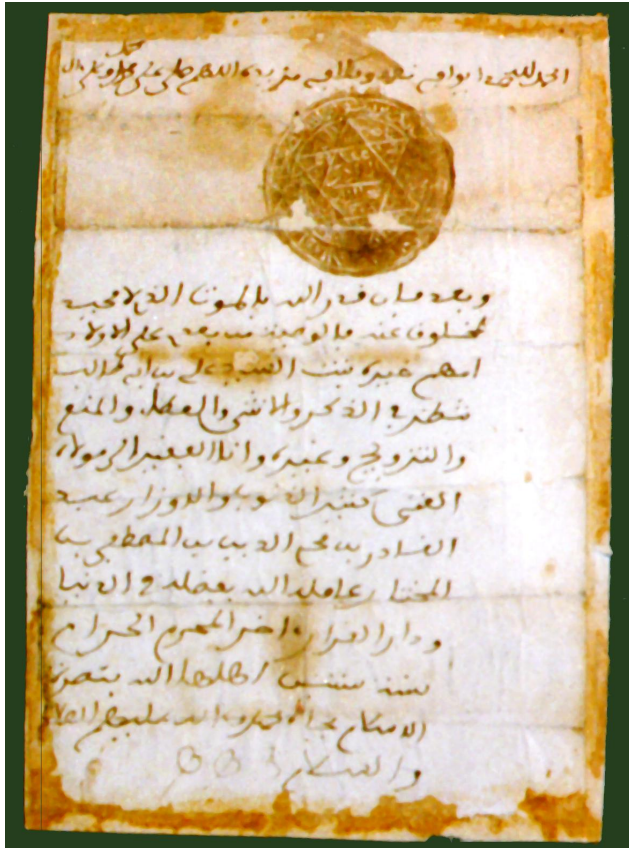 الحمد لله حمدا يوافي نعمه ويكافي مزيده اللهم صلي على محمد وعلى ال محمد
وبعد فان قدر الله بالموت الذي لا محيد
لمخلوق عنه فالوصية من بعدي على الاولاد
امهم خيرة بنت السيد علي بن ابي طالب
في الذكر والانثى والعطاء والمنع
والتزويج وغيره وانا الفقير الى مولاه
الغني كثير الذنوب والاوزار عبد
القادر بن محي الدين بن المصطفى بن
المختار عامله الله بفضله في الدنيا
ودار القرار اواخر المحرم الحرام
سنة ستين اهلها الله بنصرة
الاسلام بجاه محمد واله عليهم
والسلام